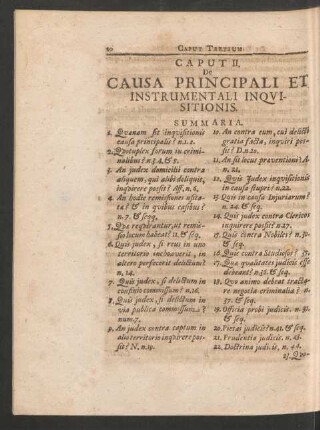 20 CAPUT TERTIUM.
CAPUT II.
De
CAUSA PRINCIPALI ET
INSTRUMENTALI INQVI-
SITIONIS.
SUMMARIA.
1. Quanam sit inquisitionis
causa principalis? n.1.2.
2. Quotuplex forum in crimi-
nalibus? n.3.4. & 5.
3. An judex domicilii contra
aliquem, qui alibi deliquit,
inquirere possit? Aff. n. 8.
4. An hodie remissiones usita-
ta? & in quibus casibus?
n. 7. & seqq.
5. Qua requirantur, ut remis-
sio locum habeat? & seq.
6. Quis judex, si reus in uno
territorio inchoaverit, in
altero perfecerit delictum?
n. 14.
7. Quis judex, si delictum in
confinio commissum? n.
8. Quis judex, si delictum in
via publica commissum?
num.
9. An judex contra captum in
alio territorio inquirere pos-
sit? N. n. 19.
10. An contra eum, cui delicti
gratia facta, inquiri pos-
sit? D. n. 20.
11. An sit locus praeventioni? A-
n. 21.
12. Quis Judex inquisitionis
in causa stupri? n. 22.
13. Quis in causa Injuriarum?
n. 24. & seq.
14. Quis judex contra Clericos
inquirere possit? n. 27.
15. Quis contra Nobiles? n.
& seq.
16. Quis contra Studiosos?
17. Qua qualitates judicis esse
debeant? n. 38. & seq.
18. Quo animo debeat tracta-
re negotia criminalia?
37. & seq.
19. Officia probi judicis. n.
& seq.
20. Pietas judicis? n. 41. & seq.
21. Doctrina judicis. n. 44.